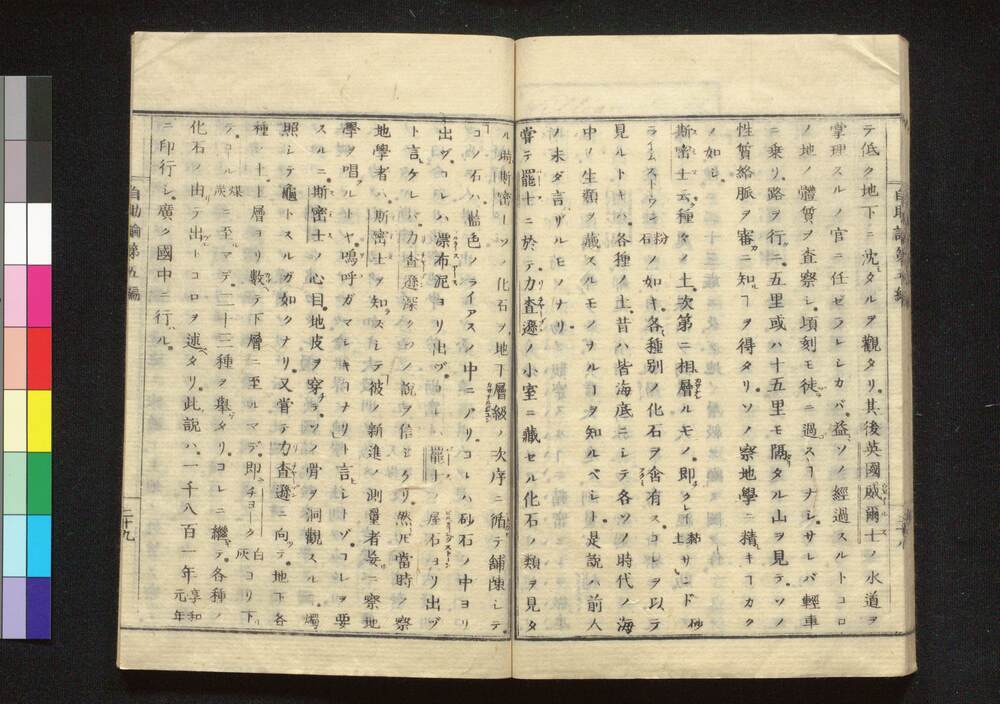 テ低ク地下ニ沈ミタルヲ觀タリ。其後英國威爾士ノ水道ヲ
掌理スルノ官ニ任ゼラレシカバ。益〻ソノ經過スルトコロ
ノ地ノ體質ヲ査察シ。頃刻モ徒ニ過スコーナシ。サレバ輕車
ニ乗リ路ヲ行ニ五里或ハ十五里モ隔タル山ヲ見テ。ソノ
性質絡脈ヲ審ニ知ルヿヲ得タリ。ソノ察地學ニ精キヿカク
ノ如シ。
斯密士云。種々ノ土。次第ニ相層ルモノ。即クレイ 粘土 サンド 砂
ライムストウニ 石粉 ノ如キ。各〻種別ノ化石ヲ含有ス。コレヲ以テ
見ルトキハ。各種ノ土。昔ハ皆海底ニシテ各ソノ時代ノ海
中ノ生類ヲ藏スルモノヲルヿヲ知ルベシト。是說ハ前人
ノ未ダ言ザルモノナリ。
嘗テ罷士ニ於テ。力査遜ノ小室ニ藏セル化石ノ類ヲ見タ
ル時斯密士ソノ化石ヲ。地下層級ノ次序ニ循テ鋪陳シテ。
コノ石ハ藍色ノライアスノ中ニアリ。コレハ砂石ノ中ヨリ
出ヅ。コレハ漂布泥ヨリ出ヅ。コレハ罷士ノ屋石ヨリ出ヅ
ト言ケレバ。力査遜深クソノ說ヲ信ジタリ。然レ𪜈當時ノ察
地學者ハ。斯密士ヲ知ズシテ。彼ノ新進ノ測量者妄ニ察地
學ヲ唱ルトヤ。嗚呼ガマシキ
スルニ。斯密士ノ心目。地皮ヲ穿テ。ソノ骨ヲ洞觀スル。燭
照シテ
種ノ土。上層ヨリ數テ下層ニ至ルマデ。即チョーク 白灰 ヨリ下
テ。コール 煤炭 ニ至ルマデ。二十三種ヲ擧タリ。コレニ繼テ。各種ノ
化石ノ由テ出ルトコロヲ述タリ。此說ハ。一千八百一年 享和元年
ニ印行シ。廣ク國中ニ行ル。
自助論第五編
二十九